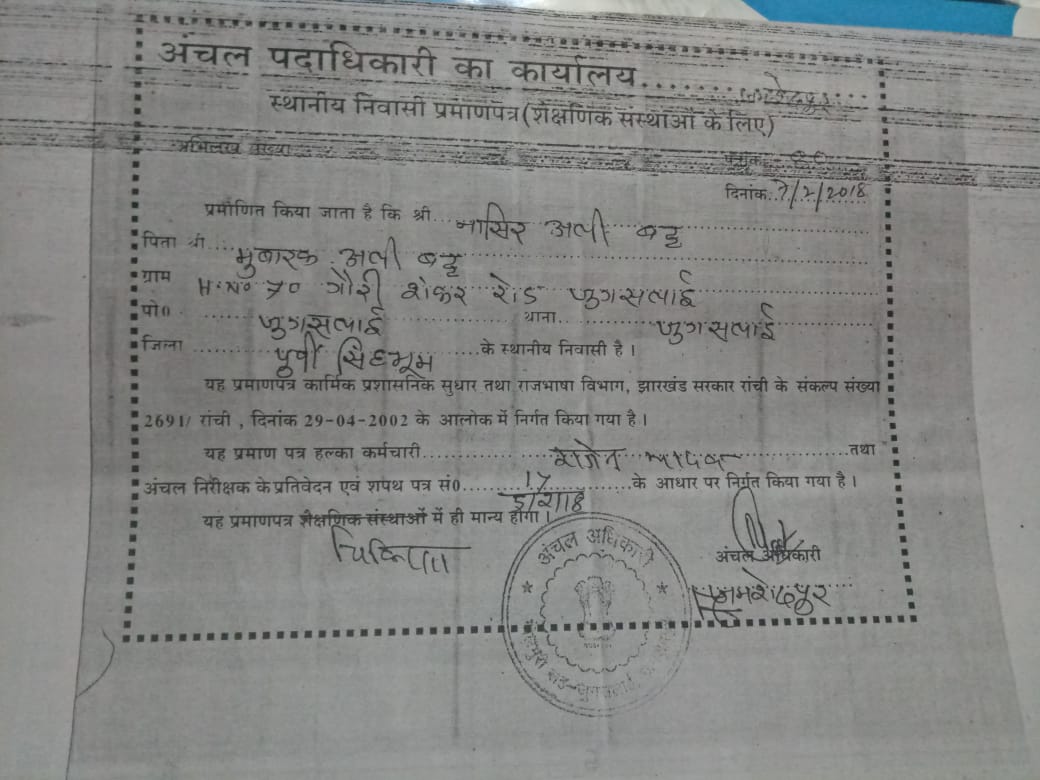 अंचल पदाधिकारी का कार्यालय......जमशेदपुर...
स्थानीय निवासी प्रमाणपत्र (शैक्षणिक संस्थाओं के लिए)
अभिलेख संख्या पत्रांक
दिनांक 7/2/2018
प्रमाणित किया जाता है कि श्री...नासिर अली बट्ट
पिता श्री....मुबारक अली बट्ट
ग्राम H.No 70 गौरी शंकर रोड जुगसलाई
पो0 जुगसलाई थाना जुगसलाई
जिला पूर्वी सिंहभूम के स्थानीय निवासी है।
यह प्रमाणपत्र कार्मिक प्रशासनिक सुधार तथा राजभाषा विभाग, झारखंड सरकार रांची के संकल्प संख्या
2691/ रांची , दिनांक 29-04-2002 के आलोक में निर्गत किया गया है।
यह प्रमाण पत्र हल्का कर्मचारी तथा
अंचल निरीक्षक के प्रतिवेदन एवं शपथ पत्र सं0 17 के आधार पर निर्गत किया गया है।
5/2/18
यह प्रमाणपत्र शैक्षणिक संस्थाओं में ही मान्य होगा।
अंचल अधिकारी
अंचल अधिकारी
जमशेदपुर